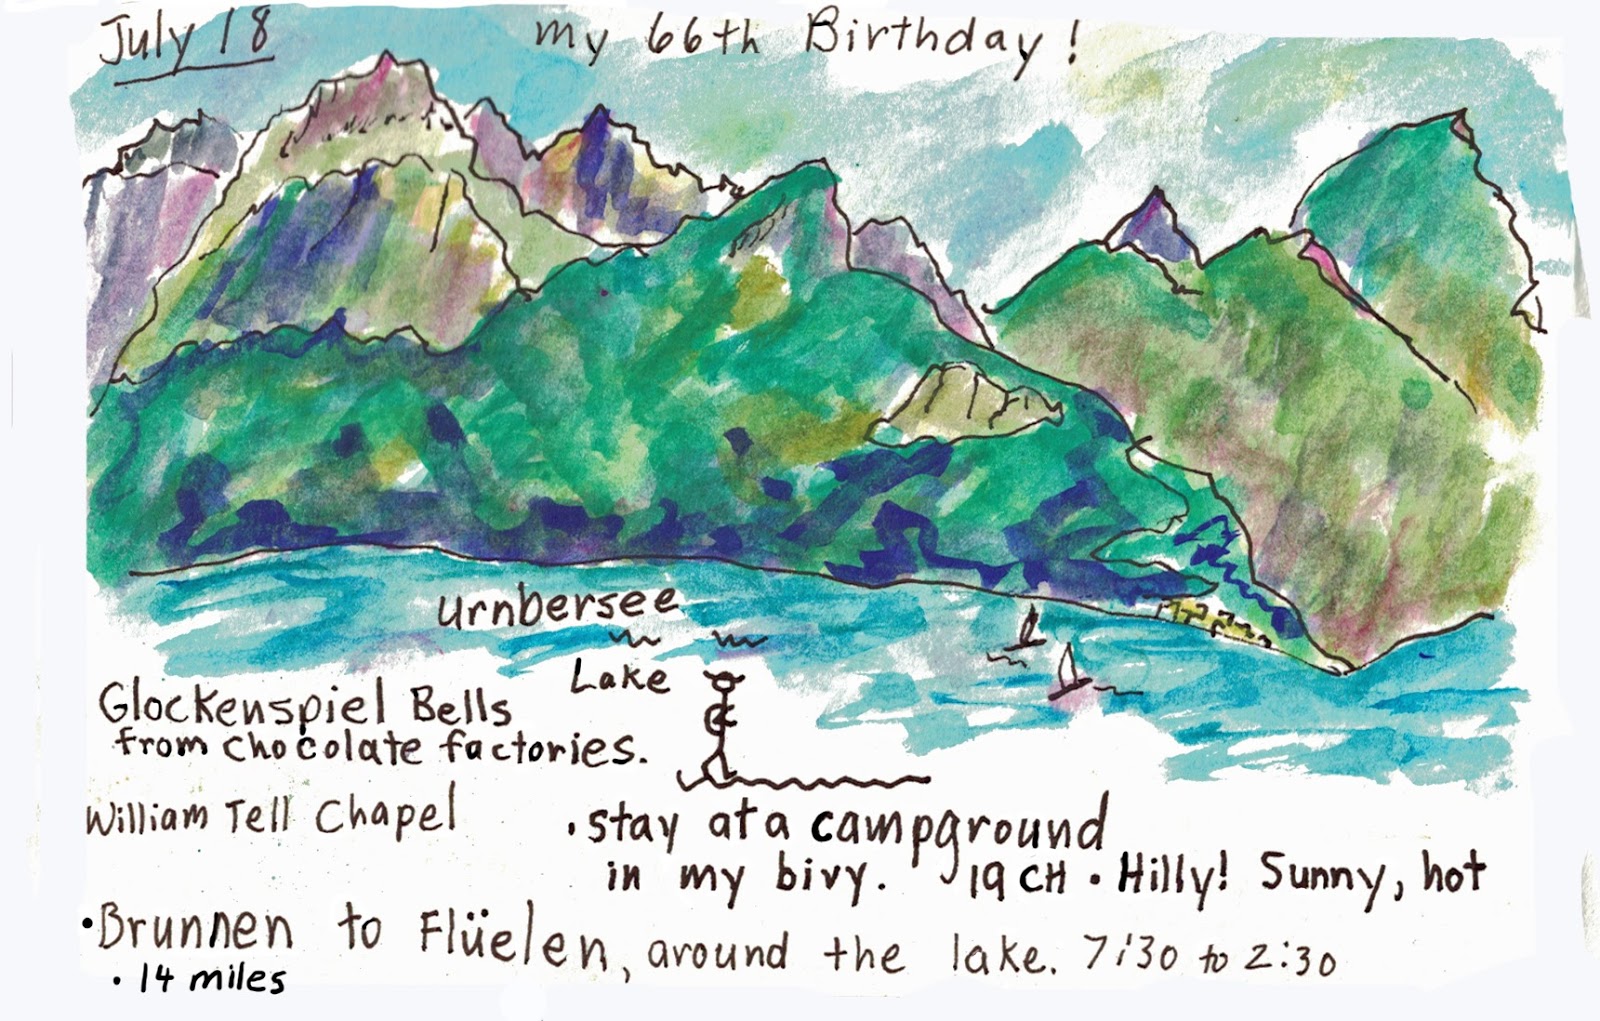 July 18
my 66th Birthday!
Urnbersee
Lake
Glockenspiel Bells
from chocolate factories.
William Tell Chapel
• stay at a campground
in my bivy. 19 CH • Hilly! Sunny, hot
• Brunnen to Flüelen, around the lake. 7:30 to 2:30
• 14 miles